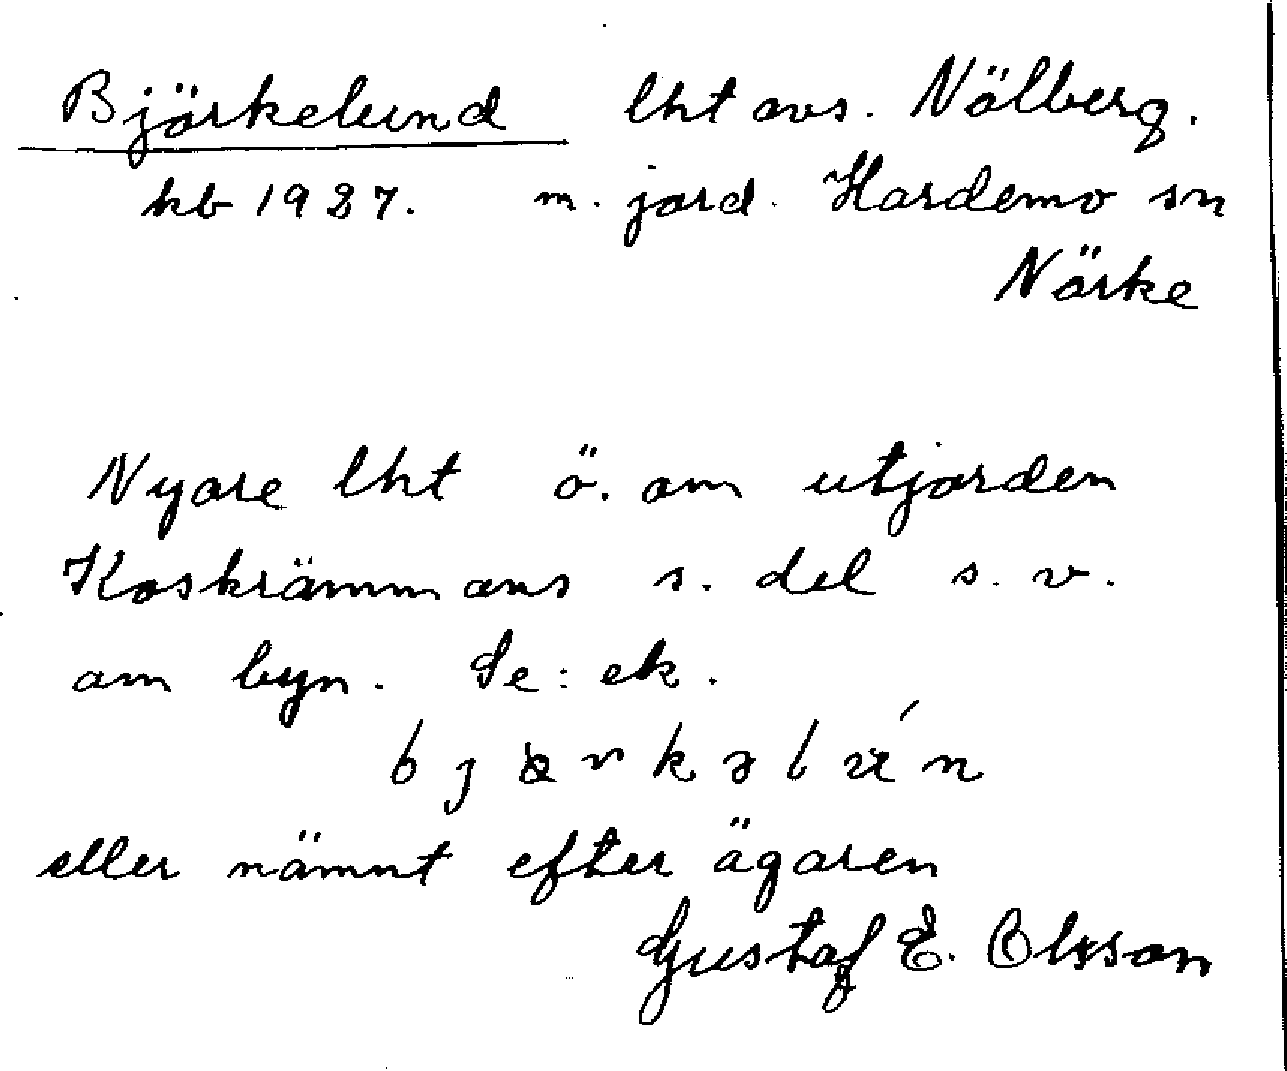 Björkelund lht avs. Nälberg.
kb 1927. m. jord. Hardemo sn
Närke
Nyare lht ö. om utjorden
Koskrämmans s. del s. v.
om byn. Se: ek.
eller nämnt efter ägaren
Gustaf E. Olsson